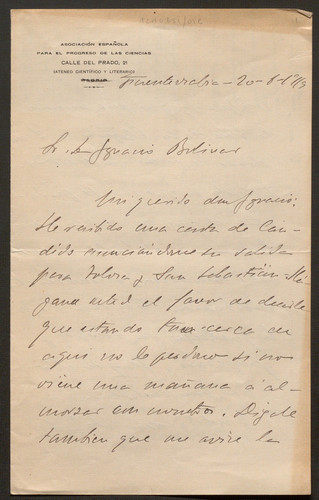 ASOCIACIÓN ESPAÑOLA
PARA EL PROGRESO DE LAS CIENCIAS
CALLE DEL PRADO, 21
(ATENEO CIENTÍFICO Y LITERARIO)
MADRID
Fuenterrabia - 20-8-
Sr. Dn Ignacio Bolivar
Mi querido don Ignacio:
He recibido una carta de Can-
dido anunciandome su salida
para Tolosa y San Sebastian. Há-
game usted el favor de decirle
que estando tan cerca de
aqui no le perdono si no
viene una mañana á al-
morzar con nosotros. Digale
tambien que me avise la